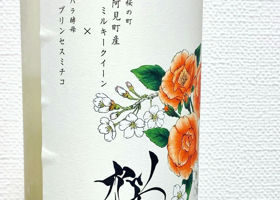 桜の町
阿見町産
ミルキークイーン
×
バラ酵母
プリンセスミチコ